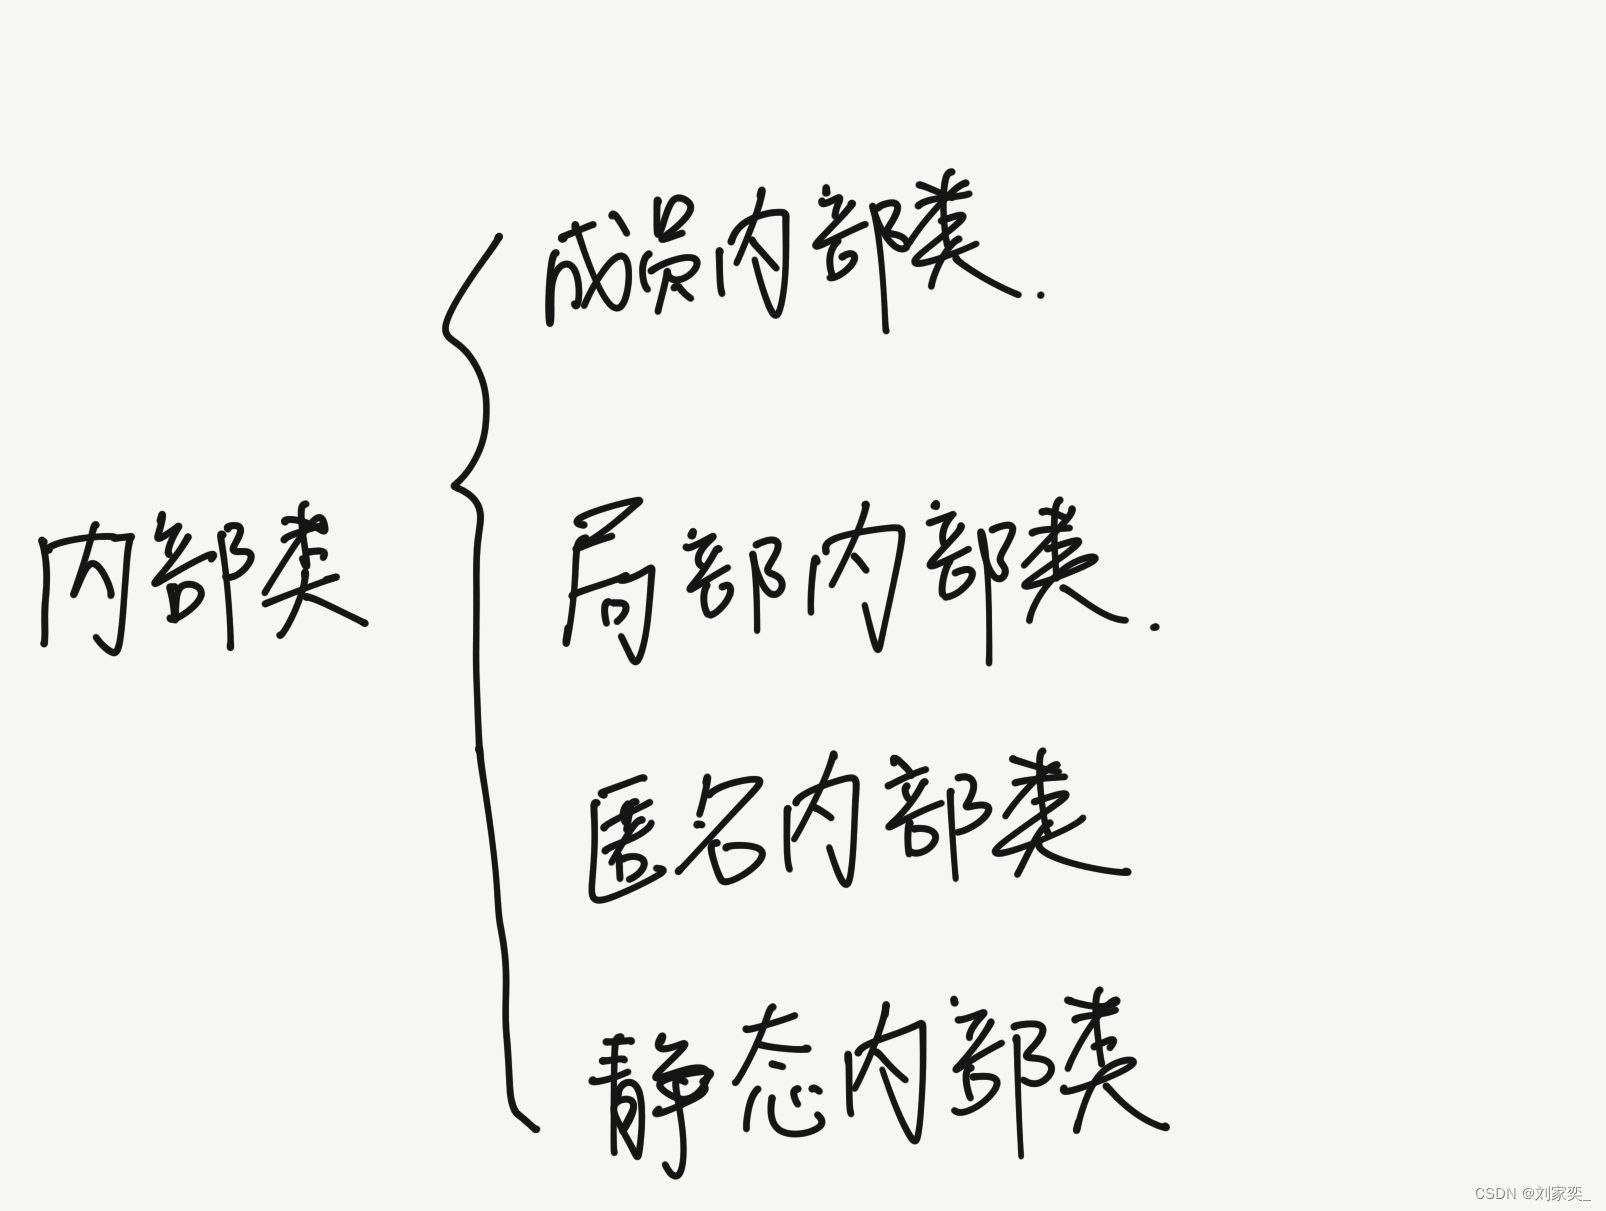 内部类
成员内部类.
局部内部类.
匿名内部类
静态内部类
CSDN @刘家奕_